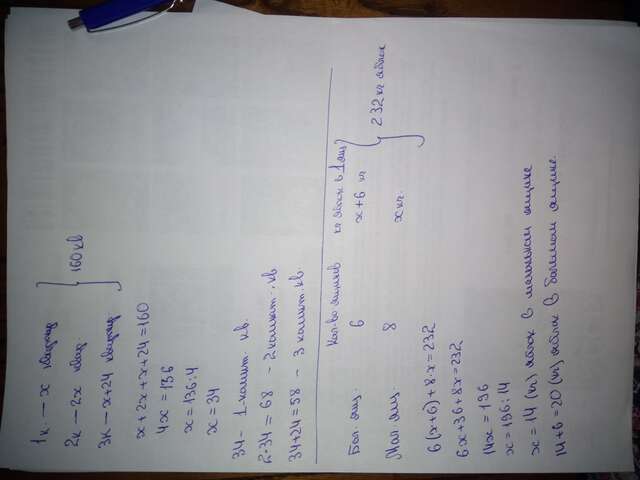 1к — x квартир
2к — 2x квар.
3к — x+24 квартир
160 кв
x+2x+x+24=160
4x = 136
x = 136:4
x = 34
34 - 1-комнат кв.
2·34 = 68 - 2 комнат. кв
34+24=58 - 3 комнат. кв.
Кол-во ящиков кг яблок в 1 ящ
Бол. ящ. 6 x+6 кг
Мал. ящ. 8 x кг.
232 кг яблок
6(x+6)+8·x=232
6x+36+8x=232
14x = 196
x = 196:14
x = 14 (кг) яблок в маленьком ящике
14+6=20 (кг) яблок в большом ящике.